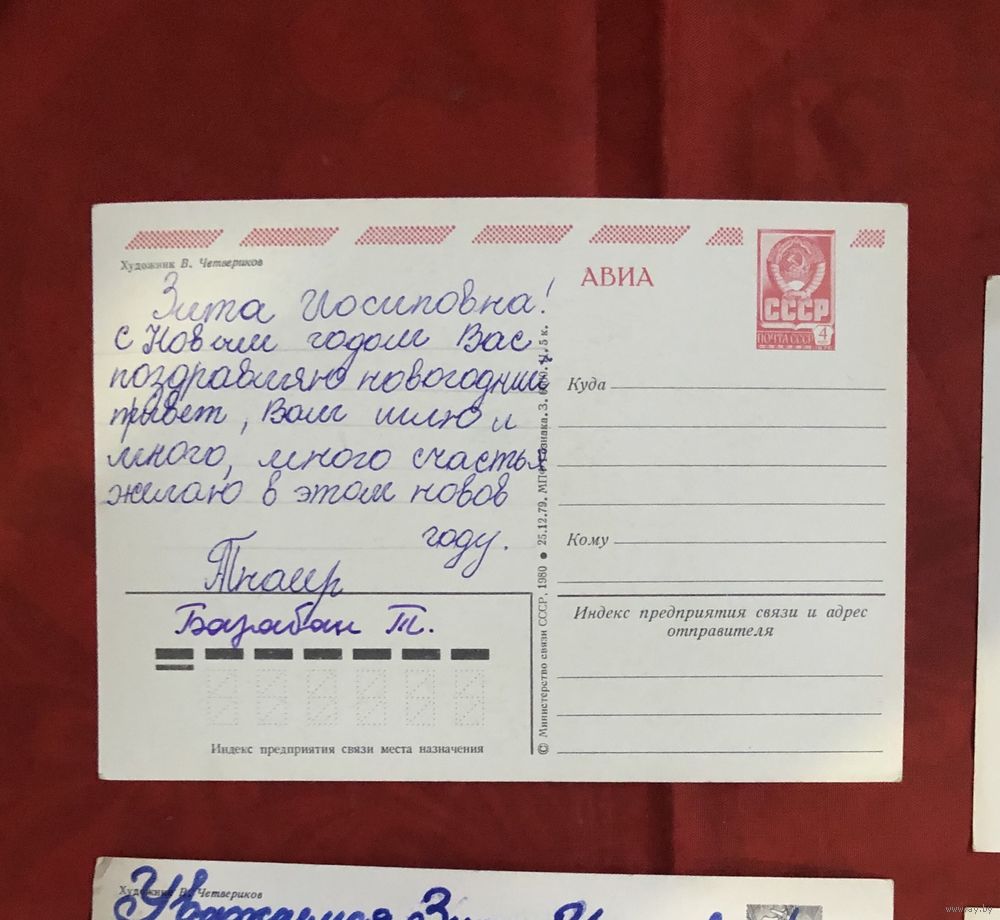 Художник В. Четвериков
АВИА
СССР
ПОЧТА СССР
4
Зита Иосиповна!
с Новым годом Вас
поздравляю новогодний
привет, Вам шлю и
много, много счастья
желаю в этом новов
году.
Барабан Т.
Куда
Кому
Индекс предприятия связи и адрес
отправителя
Индекс предприятия связи места назначения
© Министерство связи СССР. 1980 ● 25.12.79. МПФ Гознака. З. Ц. 5 к.
Художник В. Четвериков
Уважаемая
www.ay.by